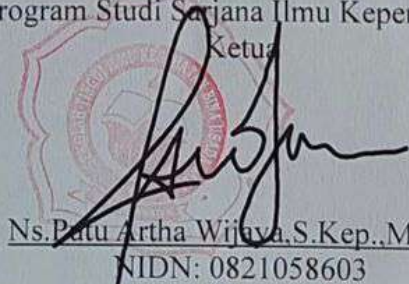 rogram Studi Sarjana Ilmu Keper
Ketua
Ns.Putu Artha Wijaya,S.Kep.,M
NIDN: 0821058603